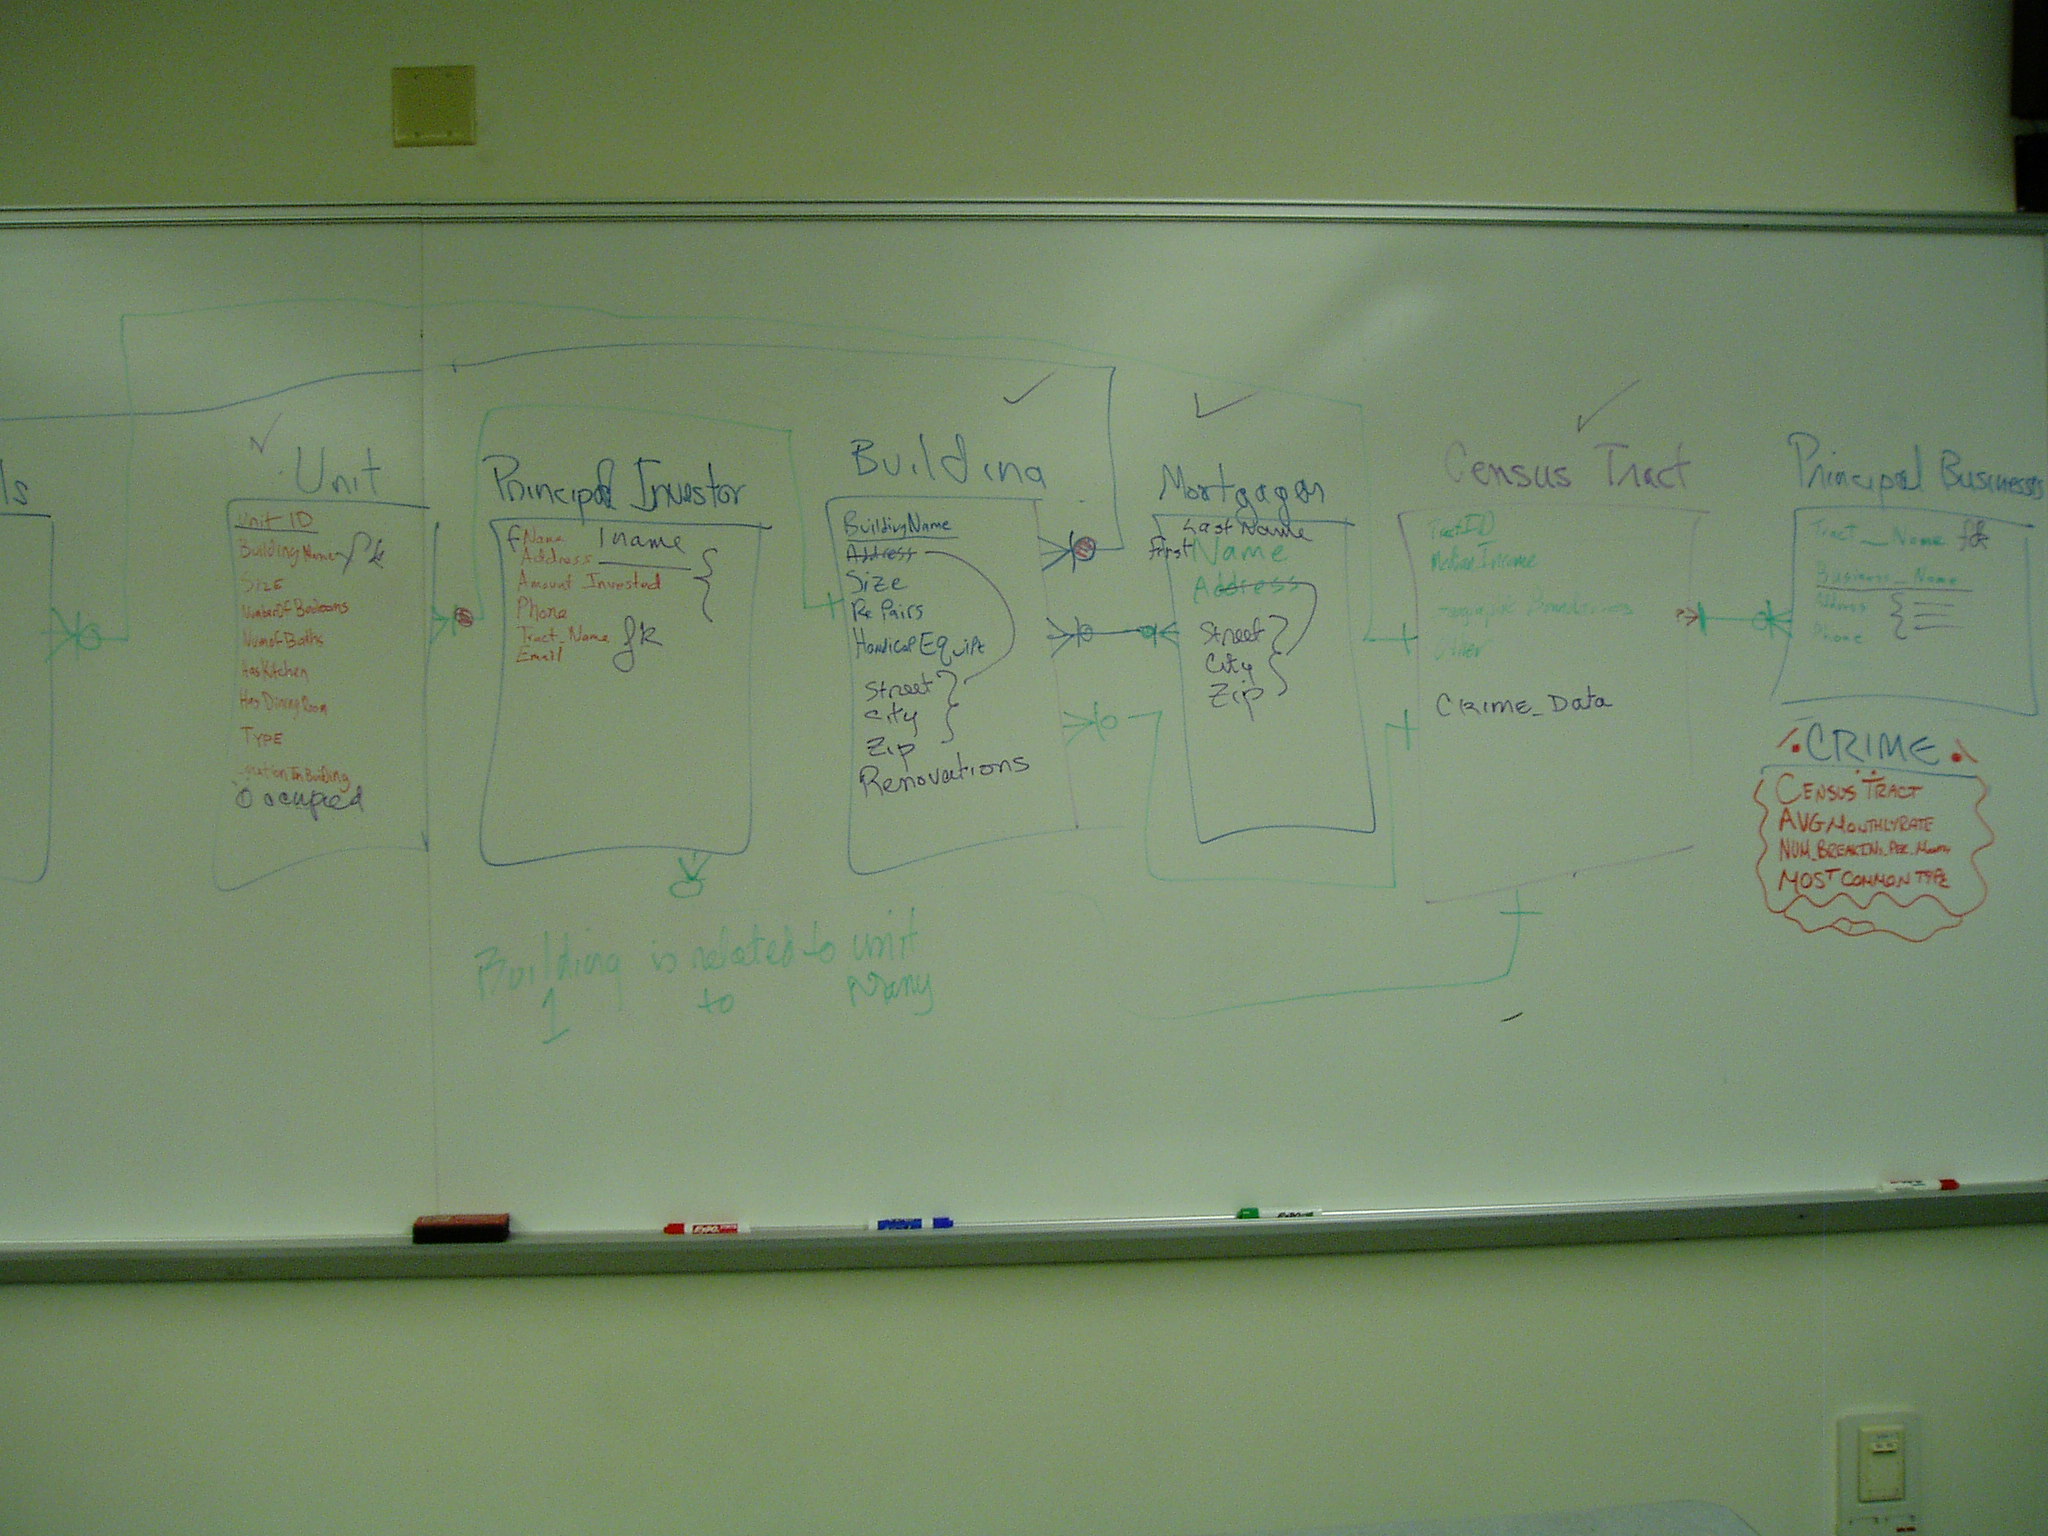 ls
Unit
Unit ID
BuildingName
Pk
Size
NumberOfBedrooms
NumOfBaths
HasKitchen
HasDiningRoom
TYPE
InBuilding
Occupied
Principal Investor
fName lname
Address
Amount Invested
Phone
Tract_Name fk
Email
Building
BuildingName
Address
Size
RePairs
Handicap Equipt
Street
City
Zip
Renovations
Mortgagor
Last Name
first Name
Address
Street
City
Zip
Census Tract
TractID
Median Income
Geographic Boundaries
Other
CRIME_Data
Principal Businesses
Tract_Name fk
Business_Name
Address
Phone
CRIME
CENSUS TRACT
AVG MONTHLY RATE
NUM_BREAKINS_PER_Month
MOST COMMON TYPE
Building is related to unit
1 to Many
EXPO